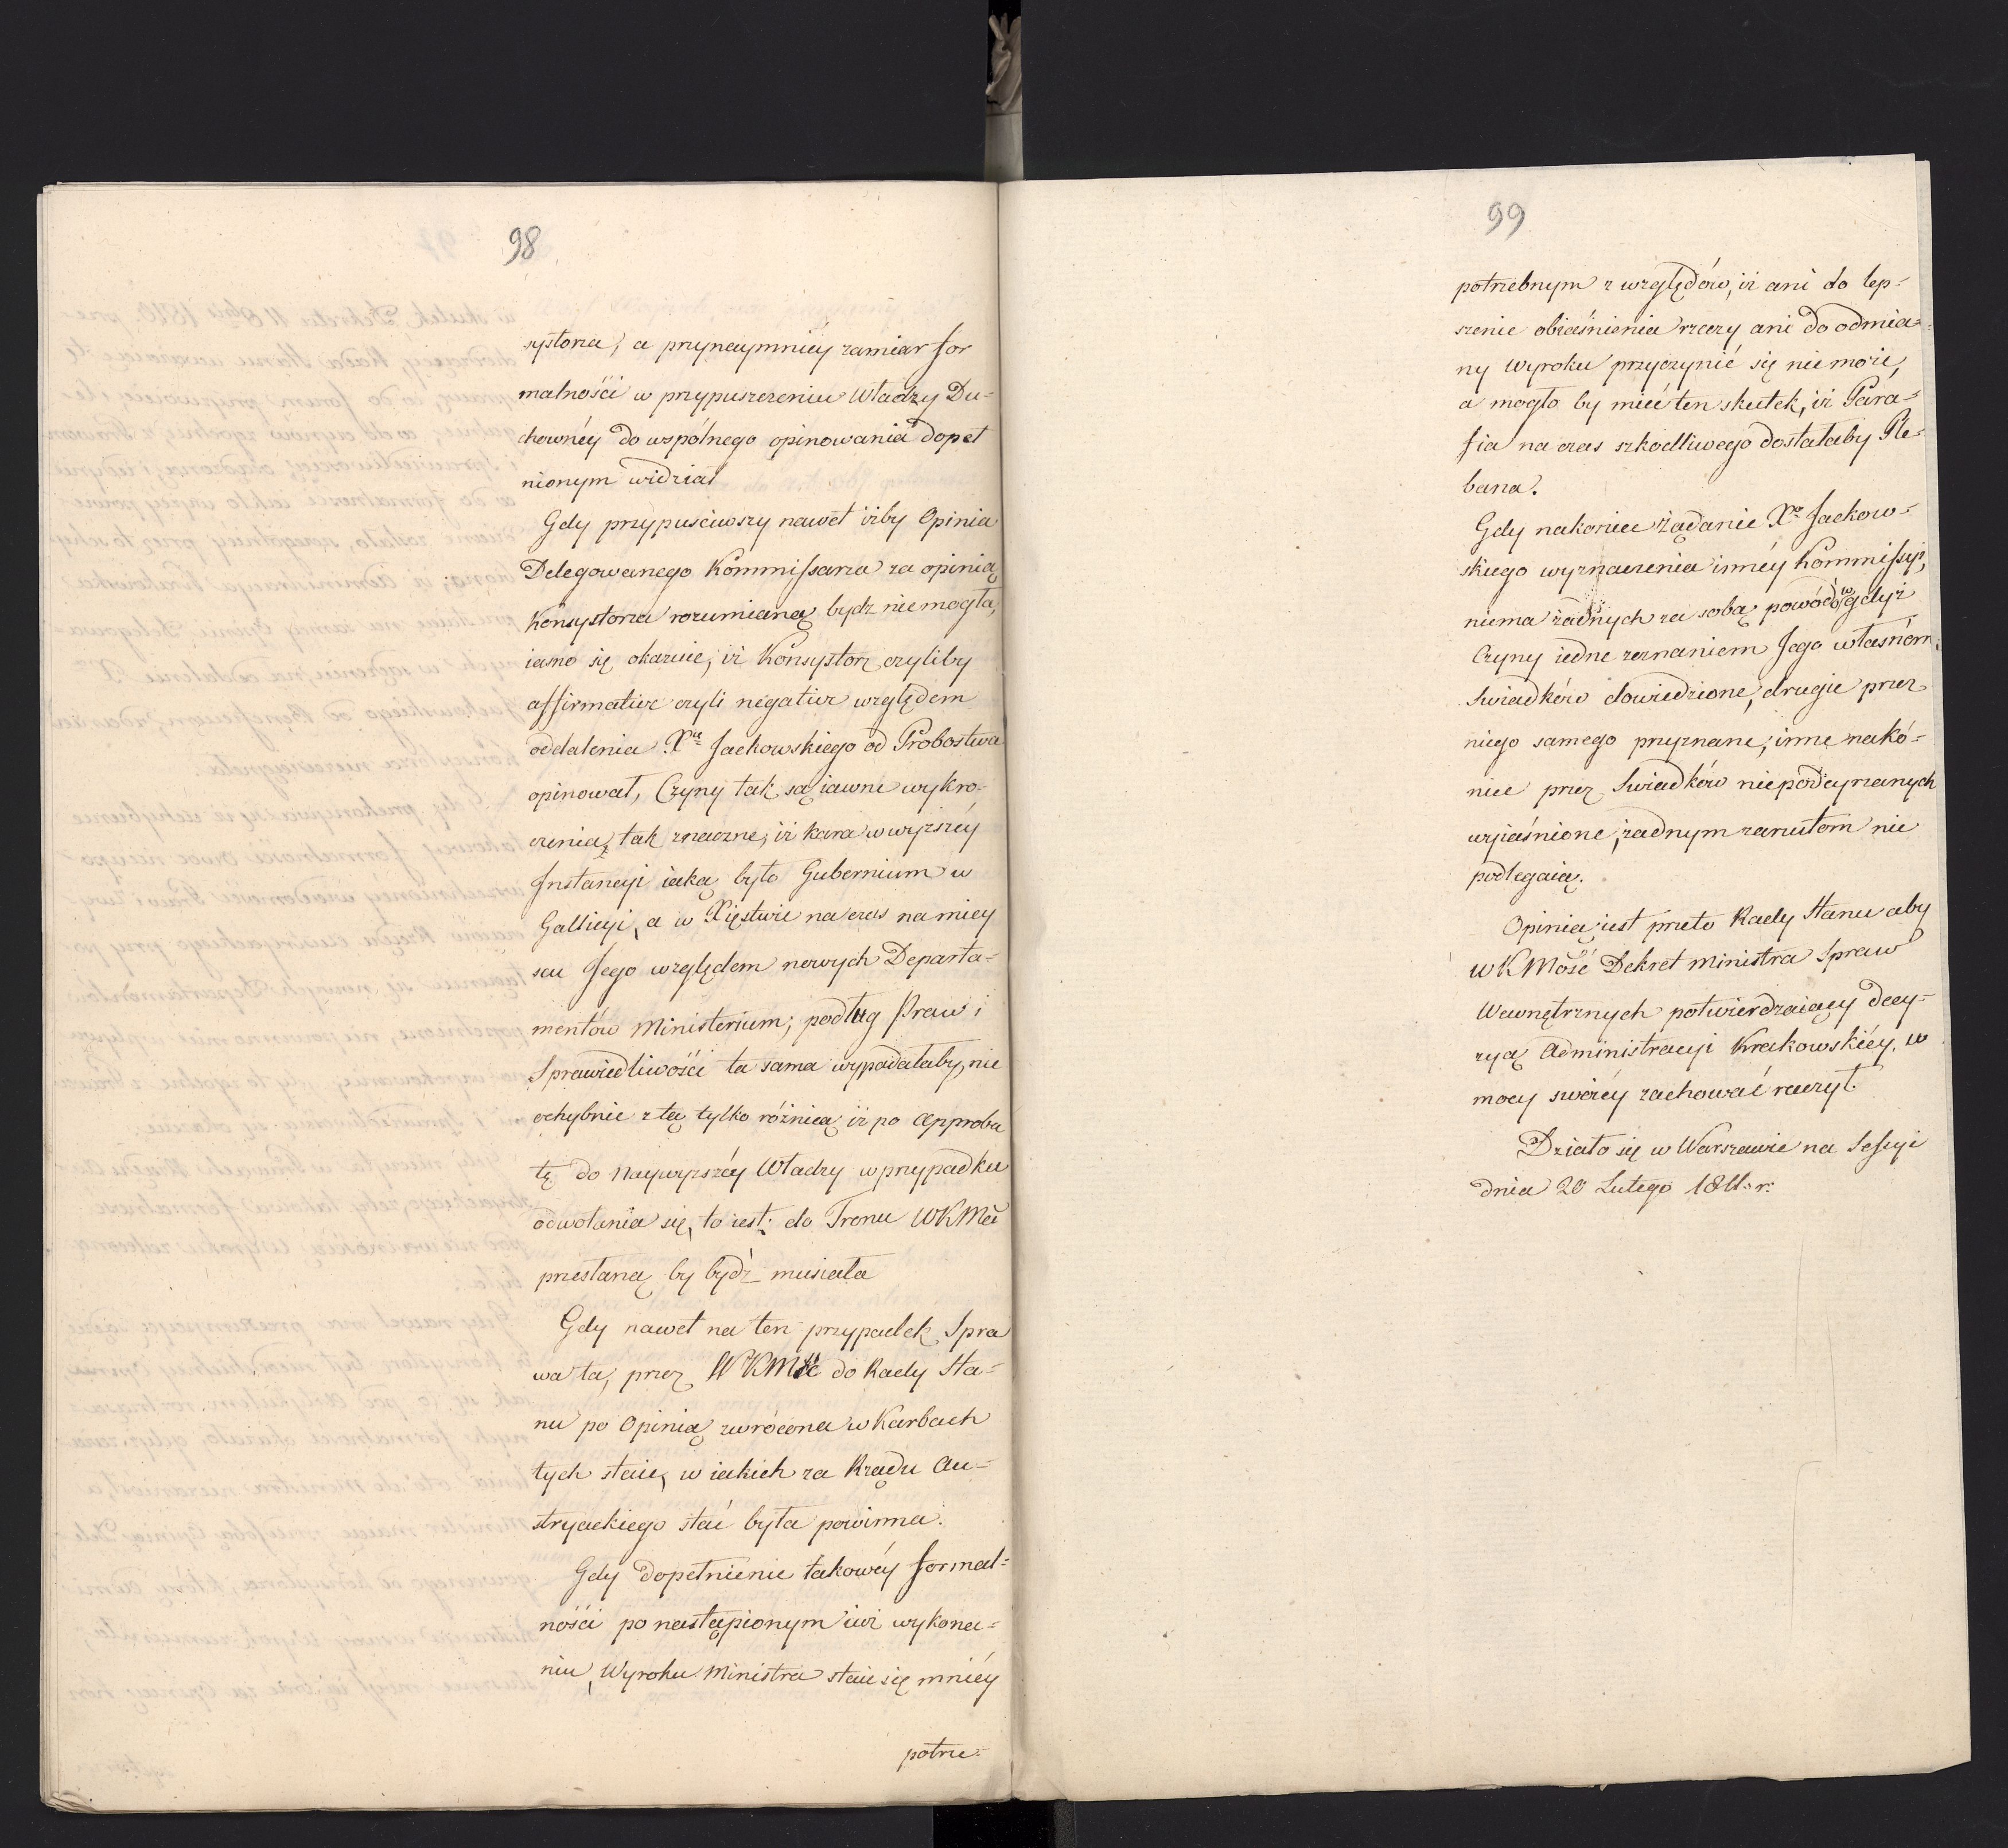 98
systorza, a przynaymnièy zamiar for
malności w przypuszczeniu Władzy Du=
chownéy do wspólnego opinowania dopeł
nionym widział
Gdy przypuściwszy nawet iżby Opinia
Delegowanego Kommissarza za opinią
Konsystorza rozumianą bydz niemogła,
iasno się okazuie, iż Konsystorz czyliby
affirmative czyli negative względem
oddalenia Xię Jackowskiego od Probostwa
opinował, Czyny tak są iawne wykro=
czenia, tak znaczne, iż kara w wyższéy
Instancyi iaką było Gubernium w
Gallicyi, a w Xięstwie na czas na miey
scu Jego względem nowych Departa=
mentów Ministerium; podług Praw i
Sprawiedliwości ta sama wypadałaby, nie
ochybnie z tą tylko różnicą iż po Approba
tę do Naywyższéy Władzy w przypadku
odwołania się, to iest: do Tronu WKMci
przesłaną by bydź musiała
Gdy nawet na ten przypadek Spra
wa ta, przez WKMść do Rady Sta=
nu po Opinią zwrócona w Karbach
tych staie, w iakich za Rządu Au=
stryackiego stać była powinna.
Gdy dopełnienie takowéy formal=
ności po nastąpionym iuż wykona=
niu, Wyroku Ministra staie się mniéy
potrze=
99
potrzebnym z względów, iż ani do lep=
szenie obiaśnienia rzeczy ani do odmia=
ny Wyroku przyczynić się nie może,
a mogło by mieć ten skutek, iż Para=
fia na czas szkodliwego dostałaby Ple=
bana.
Gdy nakoniec żądanie Xa Jackow=
skiego wyznaczenia innéy Kommissyi,
niema żadnych za sobą powodów gdyż
Czyny iedne zeznaniem Jego własném,
Swiadków dowiedzione, drugie przez
niego samego przyznane, inne nakó=
niec przez Swiadków niepodeyrzanych
wyiaśnione, żadnym zarzutom nie
podlegaią.
Opinią iest przeto Rady Stanu aby
WKMość Dekret Ministra Spraw
Wewnętrznych potwierdzaiący decy=
zyą Administracyi Krakowskiéy, w
mocy swoiéy zachować raczył.
Działo się w Warszawie na Sessyi
dnia 20 Lutego 1811. r.